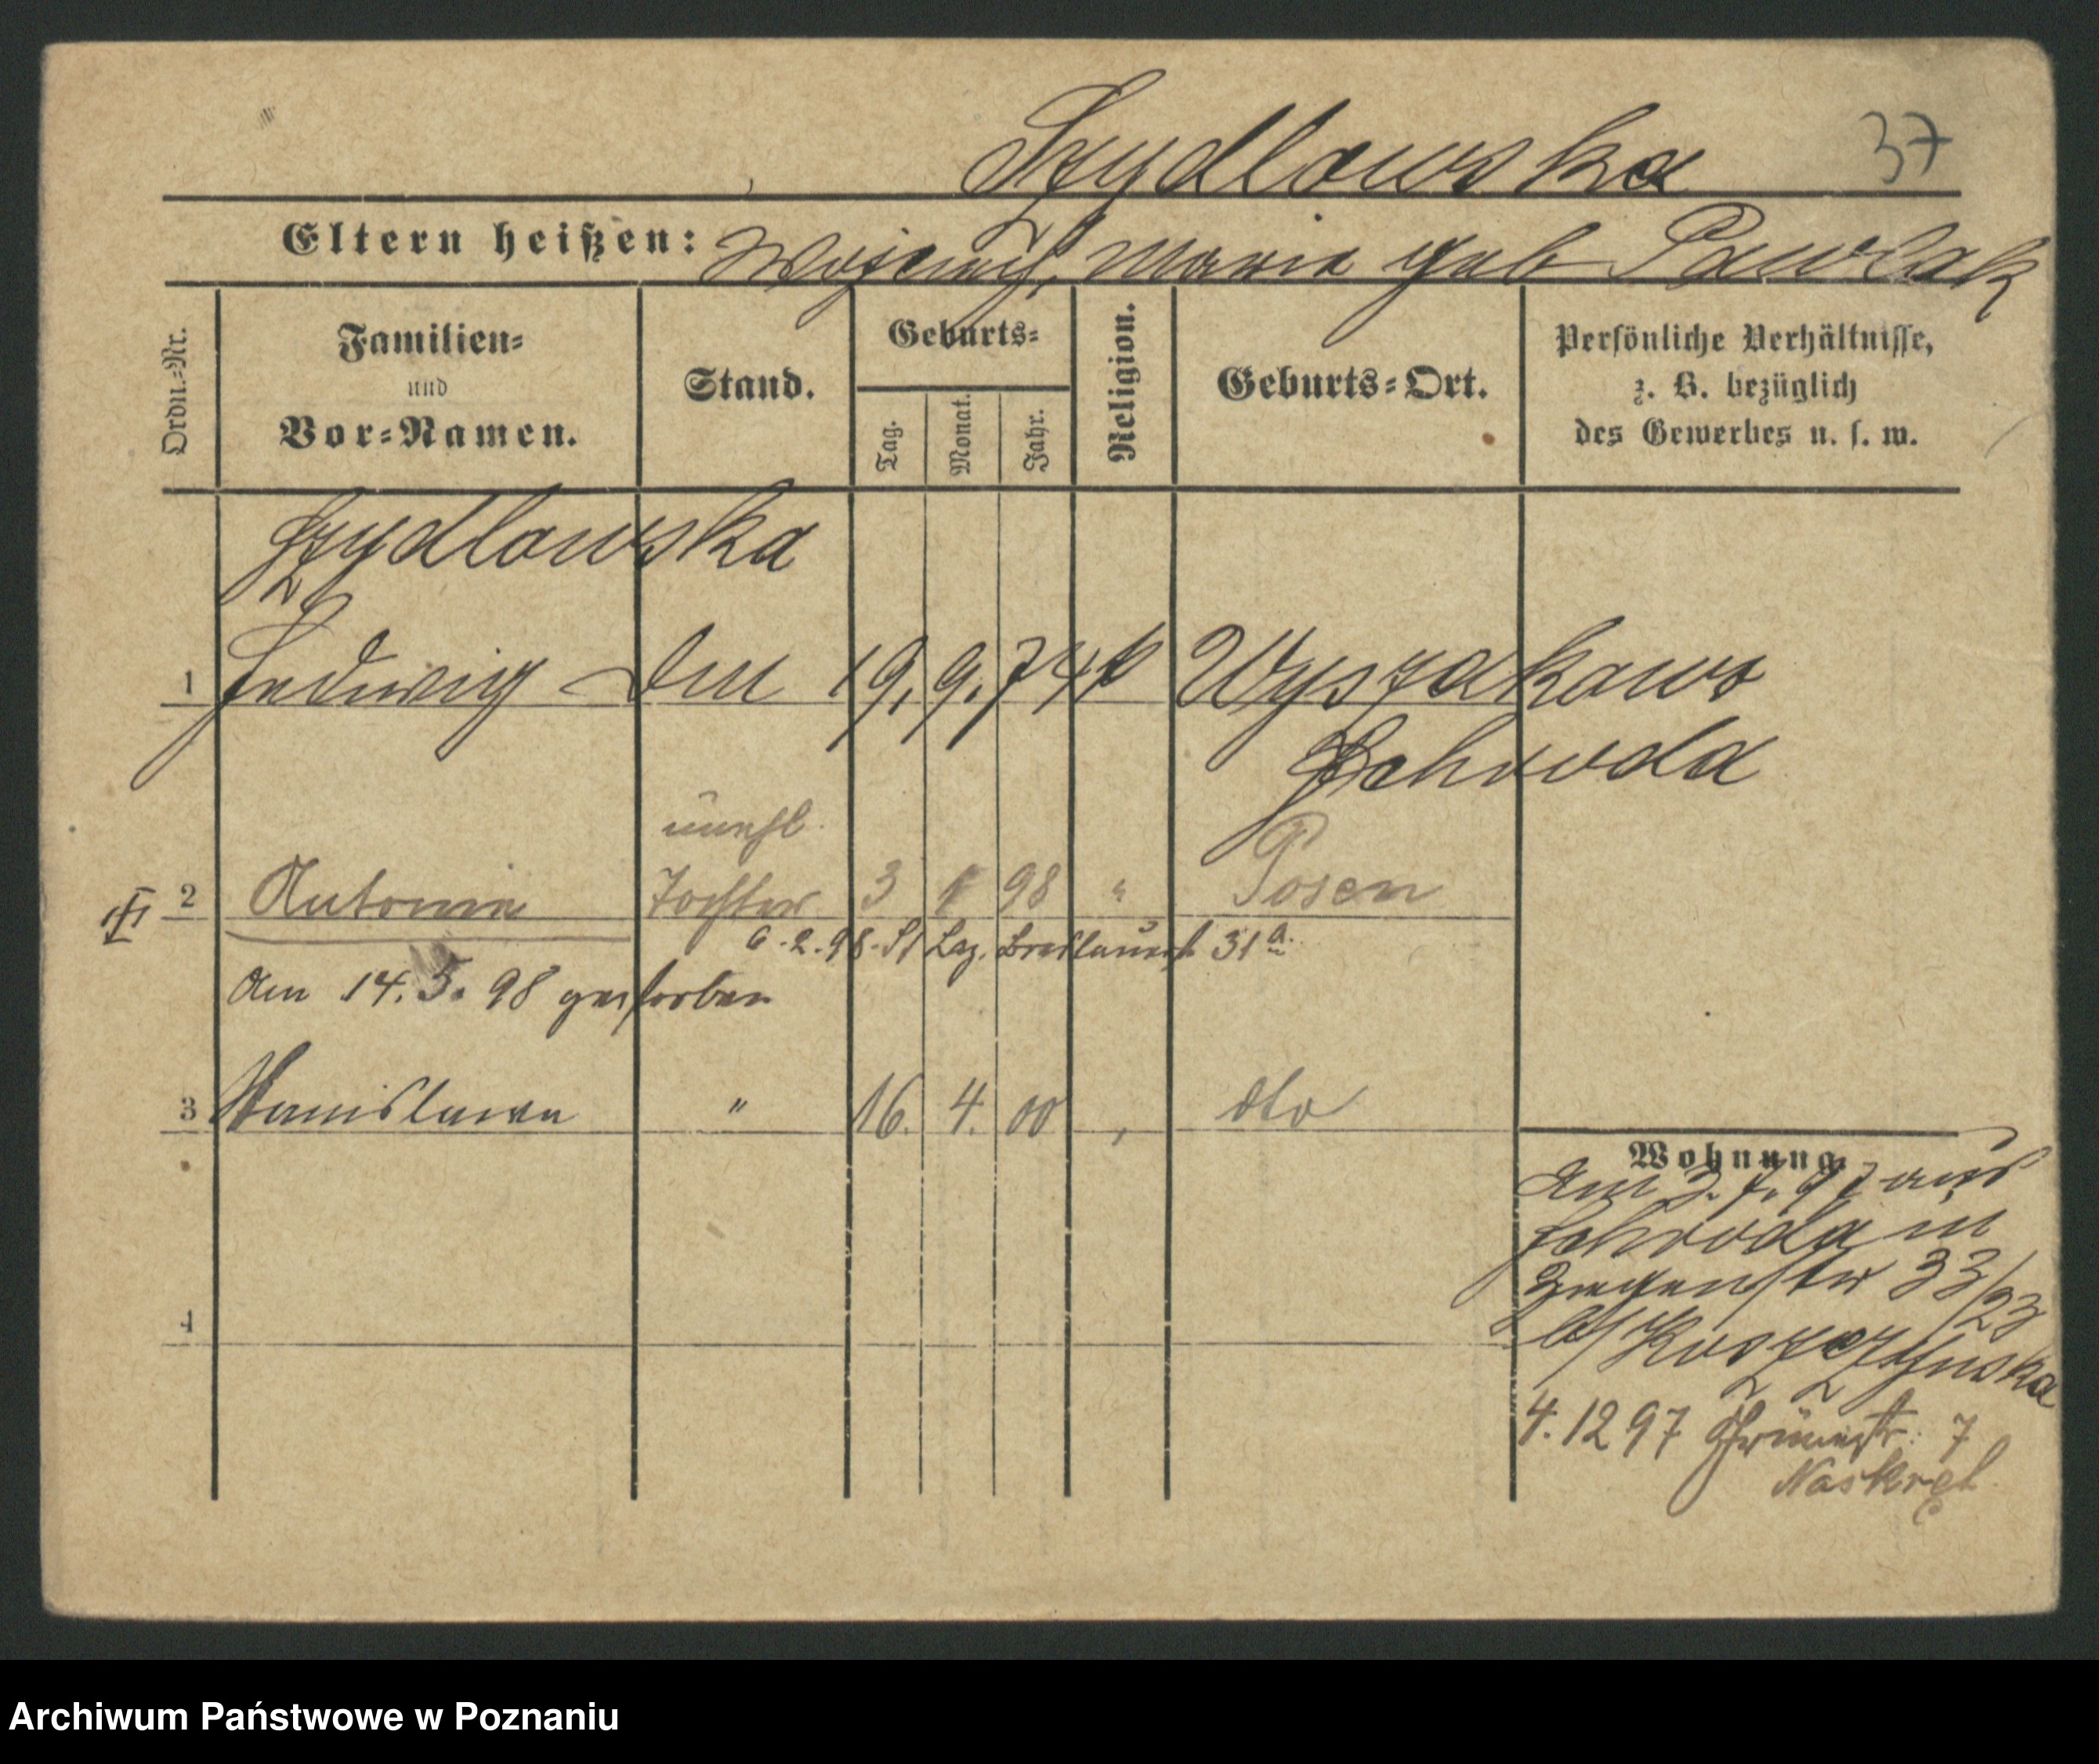 37
Szydlowska
Eltern heißen: Wojciech, Maria geb Pawlak
Ordn.-Nr.
Familien-
und
Vor-Namen.
Stand.
Geburts-
Tag.
Monat.
Jahr.
Religion.
Geburts-Ort.
Persönliche Verhältnisse,
z. B. bezüglich
des Gewerbes u. s. w.
Szydlowska
1 Hedwig 19. 9. 74 k Wyszakowo
Schroda
unehl.
2 Antonie Tochter 3 98 " Posen
6.2.98. St Laz. Breslauerst. 31a
Am 14. 5. 98 gestorben
3 Stanislawa " 16. 4. 00 " dto
4
Wohnung
Am 2. 7. 97 aus
Schroda in
33/23
b/
4.12 97 7
Naskręt
Archiwum Państwowe w Poznaniu